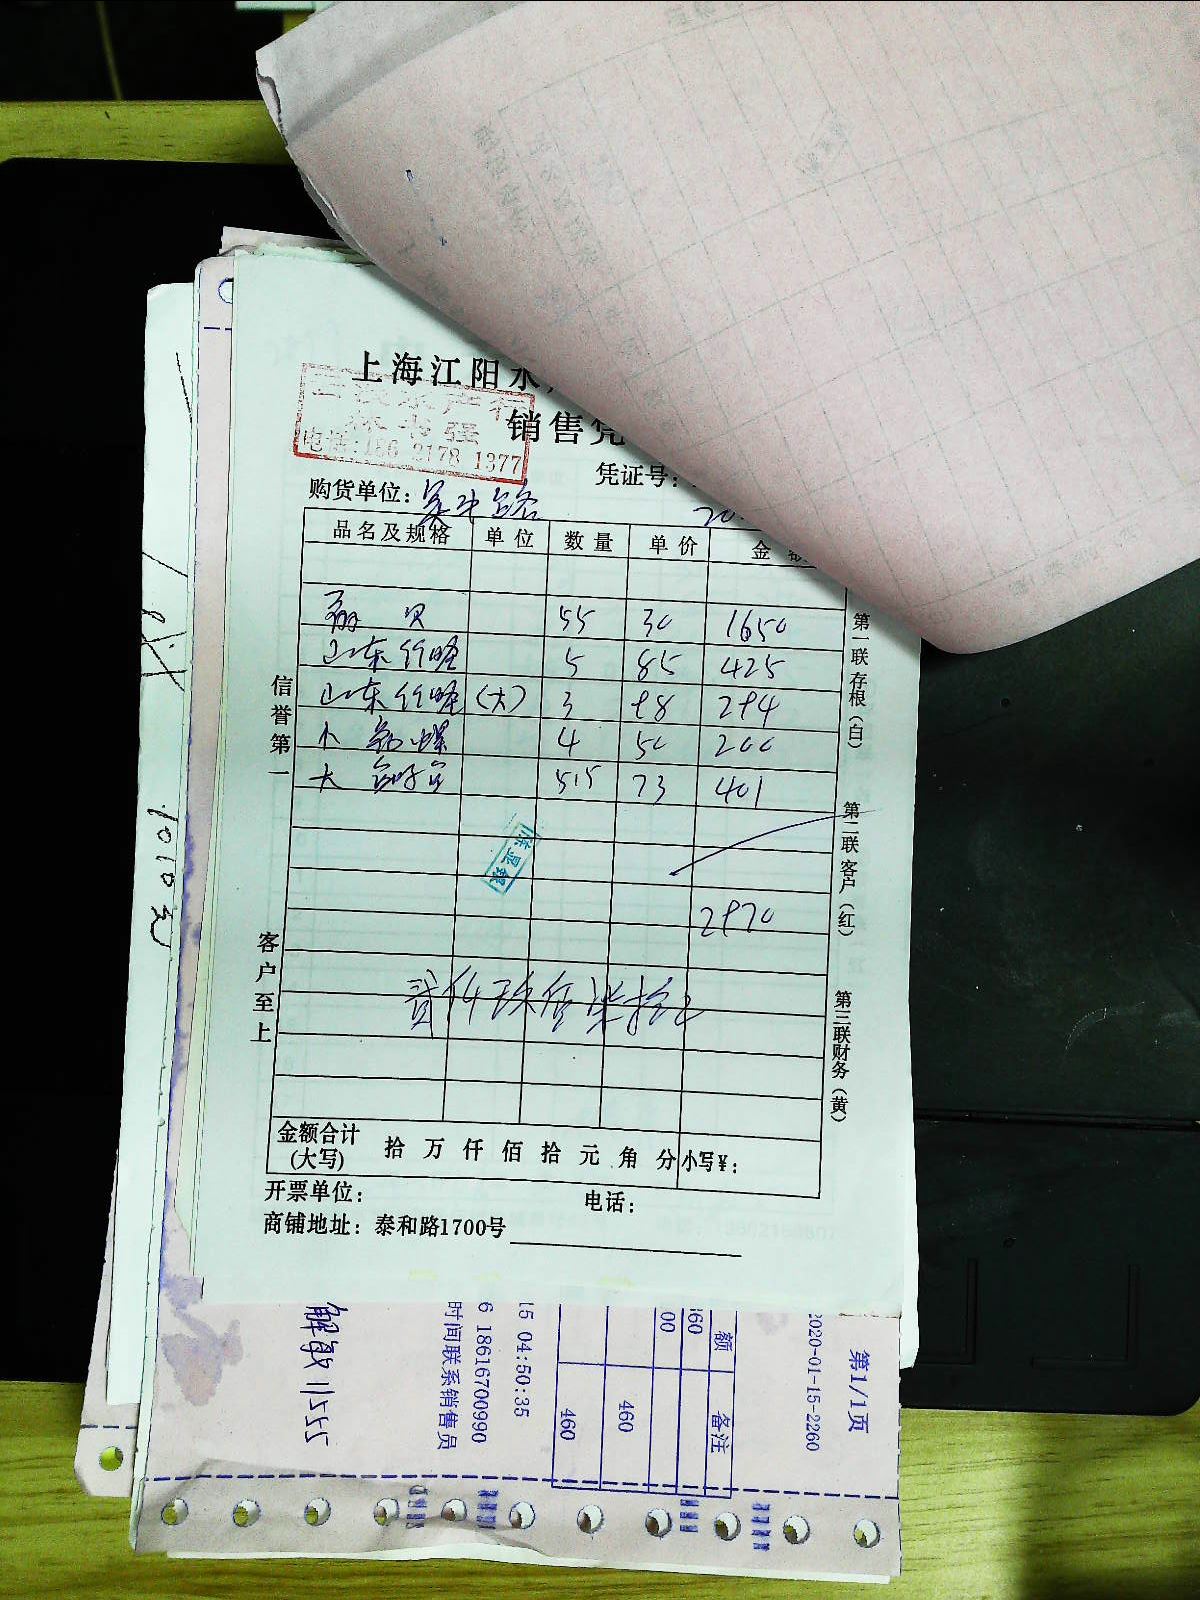 上海江阳水
销售凭
水产行
电话:156 2178 1377
凭证号:
购货单位: 吴中路
20
品名及规格 单位 数量 单价 金额
扇贝 55 30 1650
山东竹蛏 5 85 425
山东竹蛏 (大) 3 98 294
小 螺 4 50 200
大 5.5 73 401
2970
贰仟玖佰柒拾正
金额合计(大写) 拾 万 仟 佰 拾 元 角 分 小写¥:
开票单位: 电话:
商铺地址: 泰和路1700号
信誉第一
客户至上
第一联存根(白)
第二联客户(红)
第三联财务(黄)
1010元
第1/1页
2020-01-15-2260
额 备注
460
00
460
460
15 04:50:35
6 18616700990
时间联系销售员